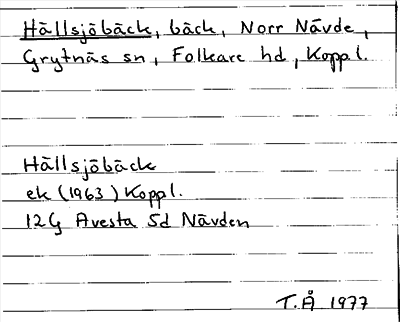 Hällsjöbäck, bäck, Norr Nävde,
Grytnäs sn, Folkare hd, Koppl.
Hällsjöbäck
ek (1963) Koppl.
12G Avesta 5d Nävden
T.Å 1977